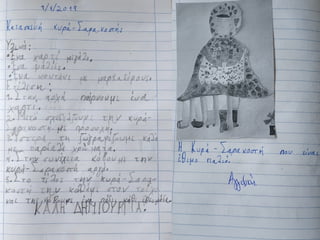 Κατασκευή κυρά-Σαρακοστής
Υλικά:
•Ένα χαρτί μεγάλο.
•Ένα ψαλίδι.
•Ένα κουτάκι με μαρκαδόρους.
Εκτέλεση:
1. Στην αρχή παίρνουμε ένα
χαρτί.
2. Μετά σχεδιάζουμε την κυρά-
Σαρακοστή με προσοχή.
3. Ύστερα τη ζωγραφίζουμε καλά
με χρώματα.
4. Στην συνέχεια κόβουμε την
κυρά-Σαρακοστή
5. Στο τέλος την κυρά-Σαρα-
κοστή την κολλάμε στον τοίχο
και της κόβουμε ένα πόδι κάθε
ΚΑΛΗ ΔΗΜΙΟΥΡΓΙΑ!
Η Κυρά-Σαρακοστή που είναι
έθιμο παλιό.